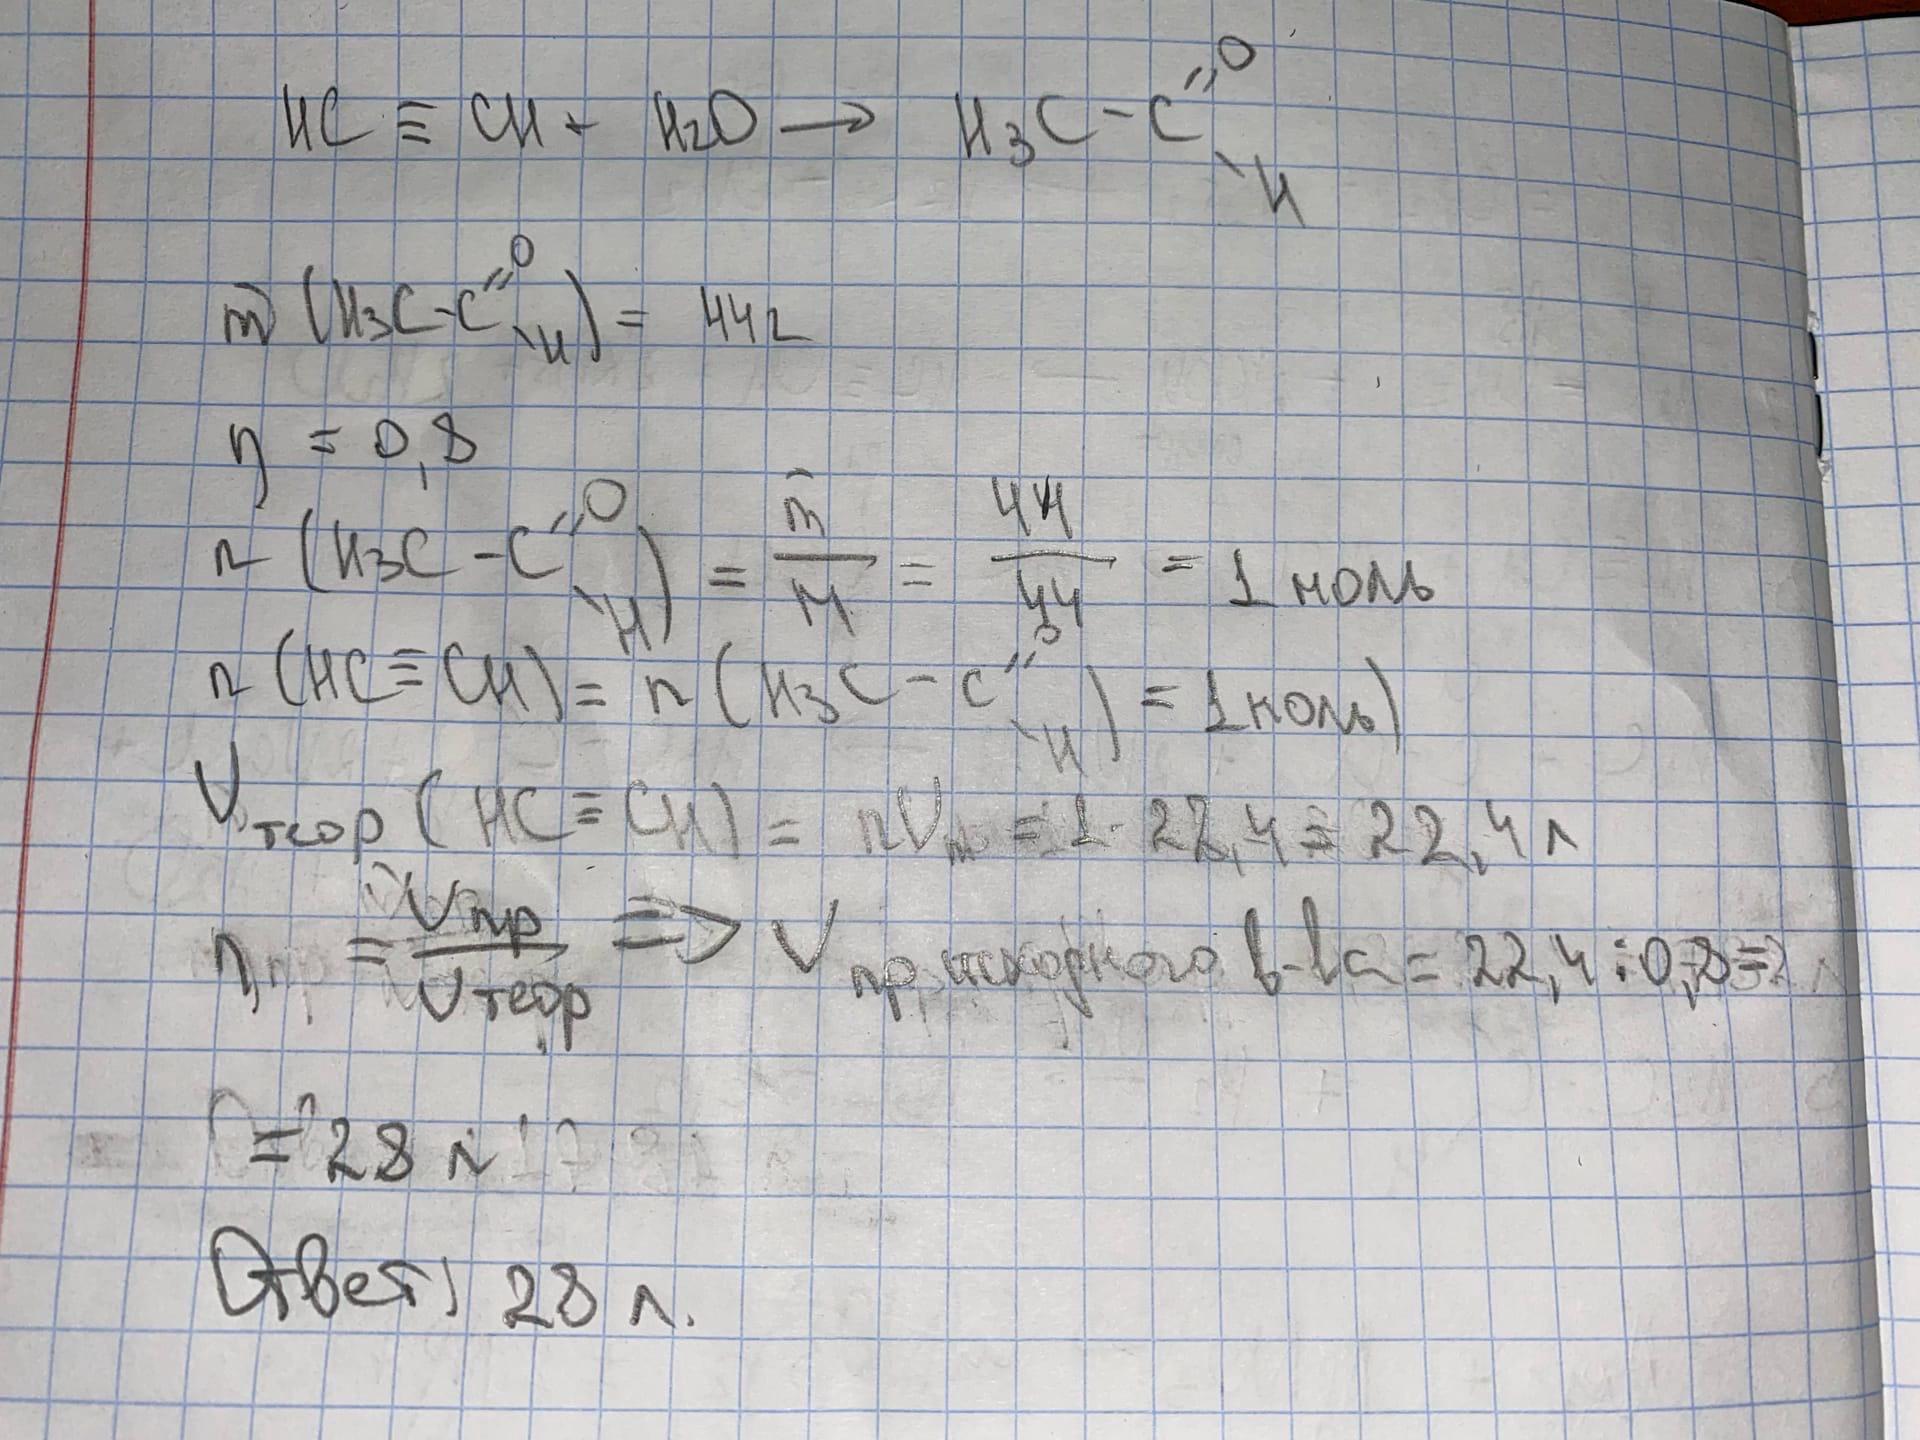 HC ≡ CH + H2O → H3C - C =O \H
m (H3C - C =O \H) = 44г
η = 0,8
n (H3C - C =O \H) = m/M = 44/44 = 1 моль
n (HC ≡ CH) = n (H3C - C =O \H) = 1 моль)
Vтеор (HC ≡ CH) = nVm = 1 · 22,4 = 22,4 л
η = Vпр/Vтеор => V пр исходного в-ва = 22,4 : 0,8 =
= 28 л
Ответ: 28 л.